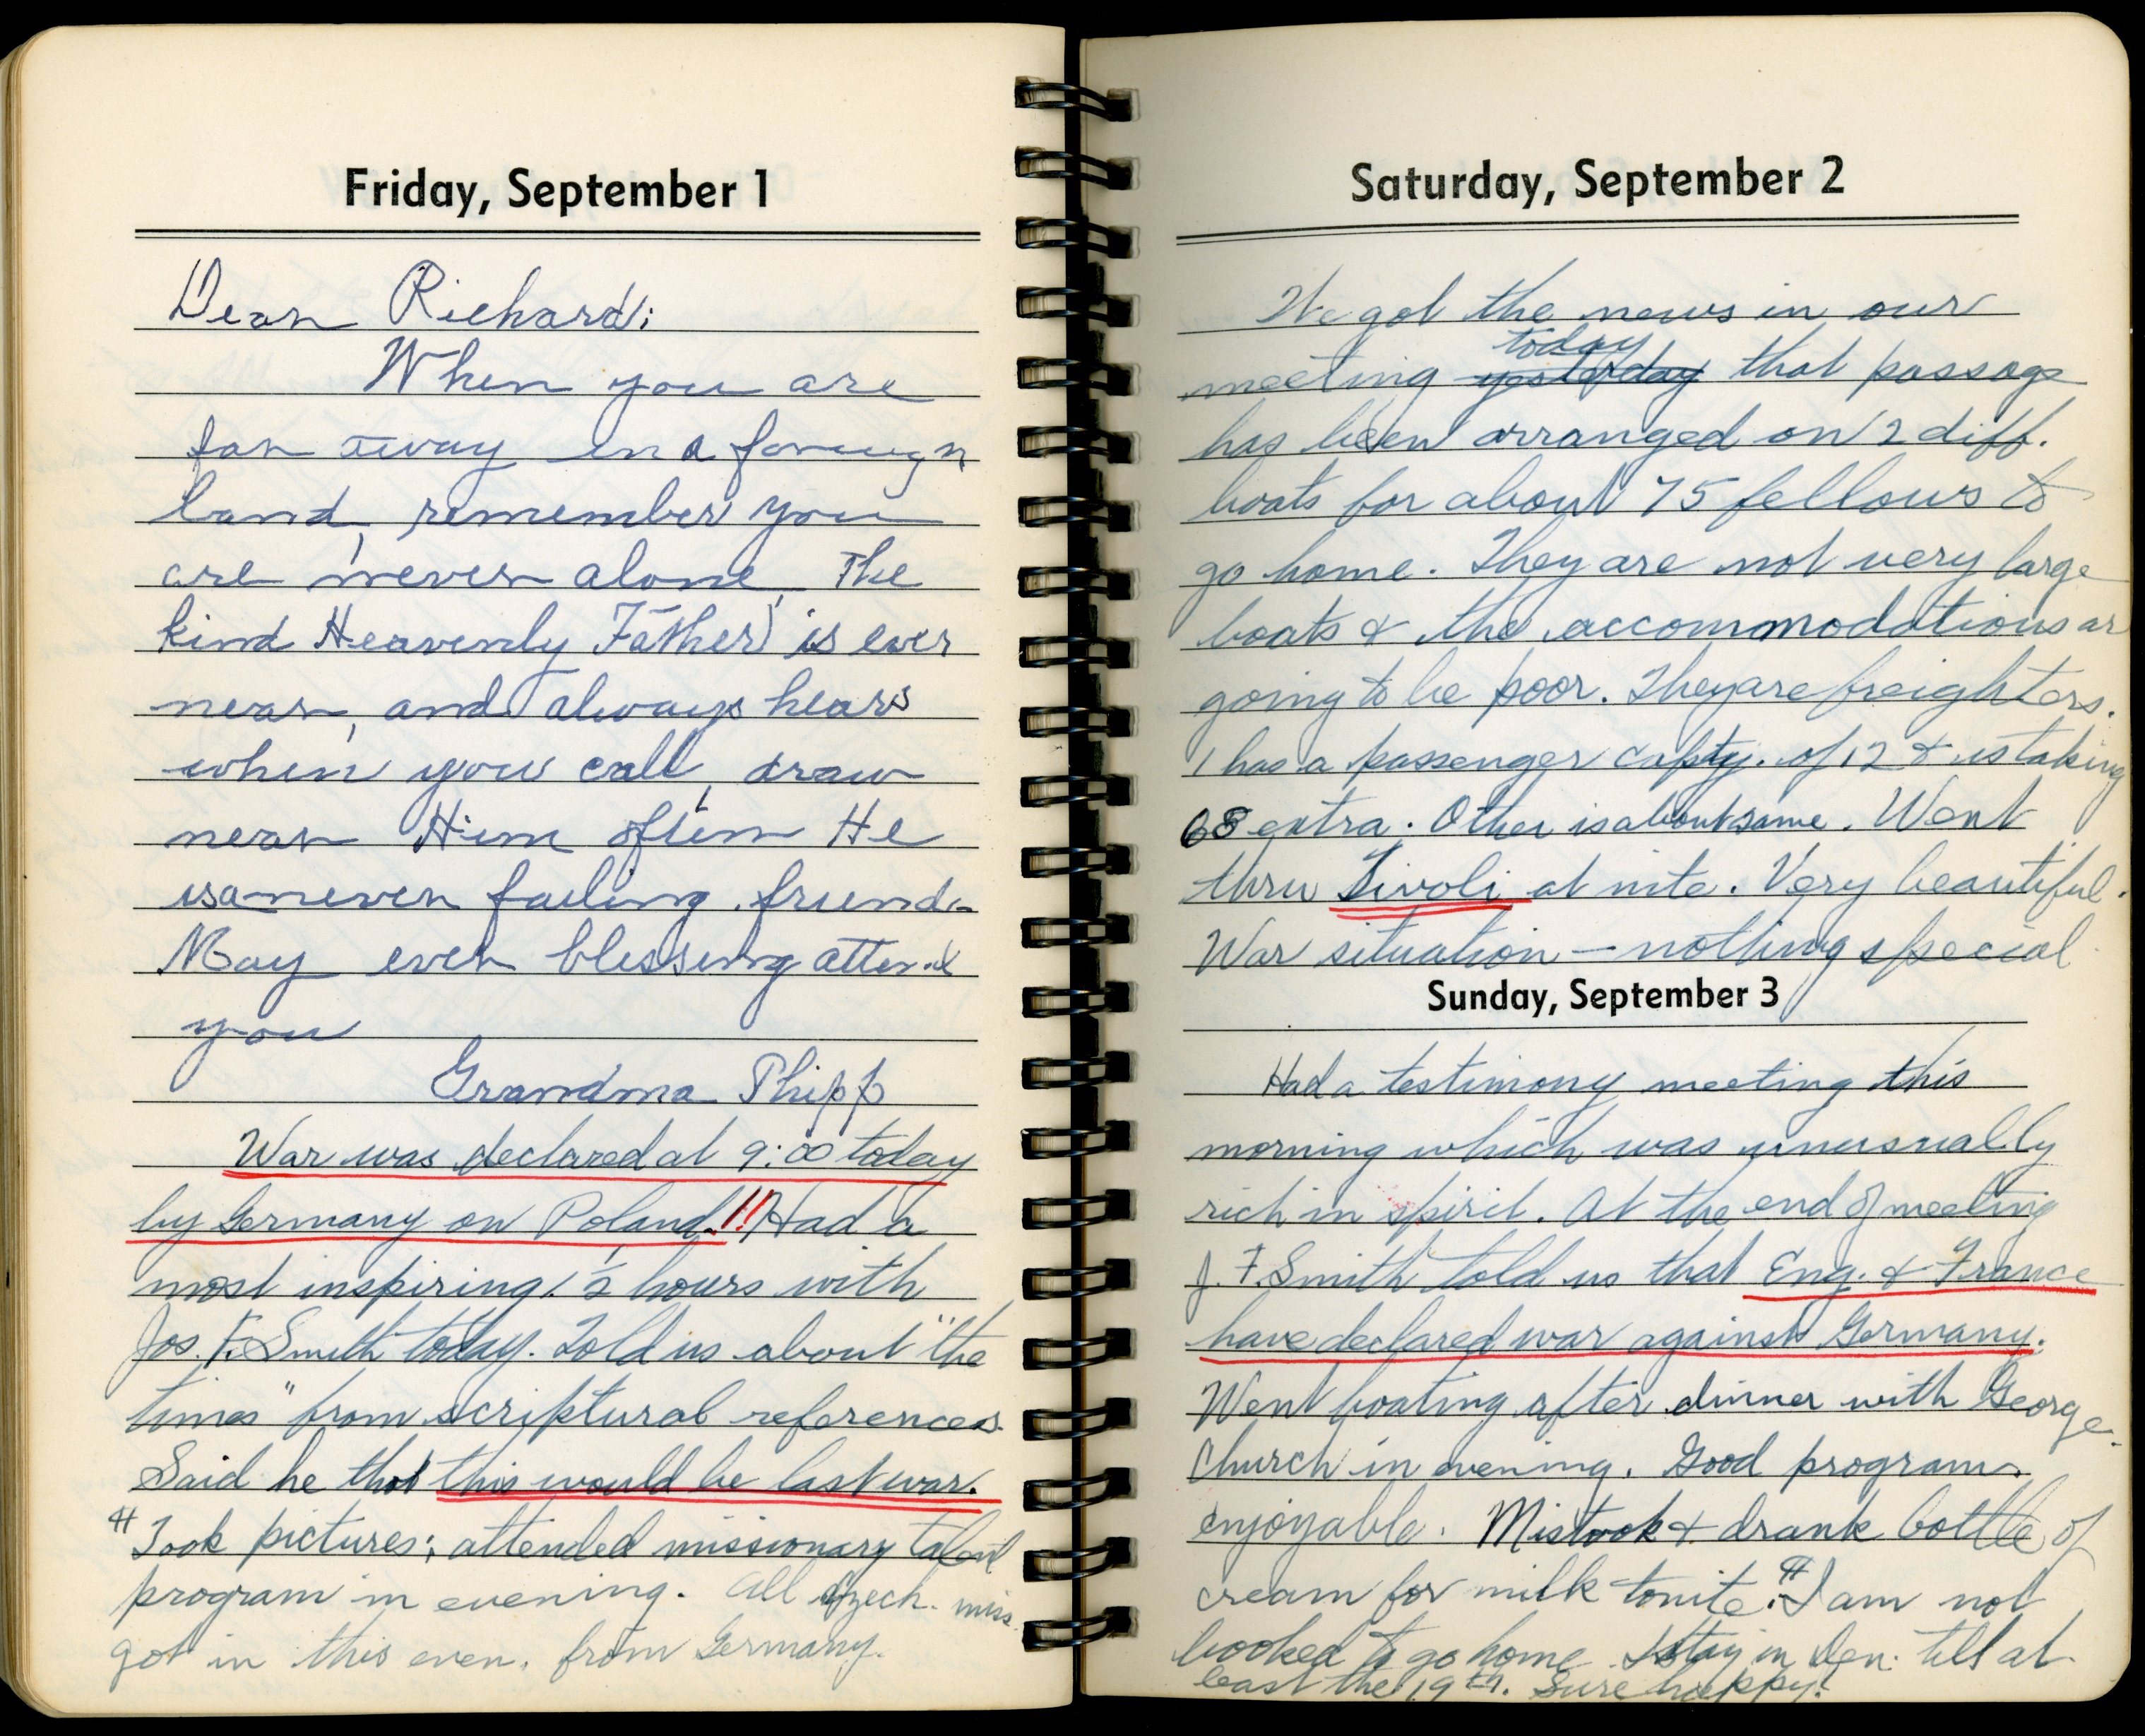 Friday, September 1
Dear Richard:
When you are
far away in a foreign
land, remember you
are never alone, The
kind Heavenly Father is ever
near, and always hears
when you call, draw
near Him often He
is a never failing friend.
May ever blessing attend
you
Grandma Phipp
War was declared at 9:00 today
by Germany on Poland.!! Had a
most inspiring 1½ hours with
Jos. F. Smith today. Told us about "the
times" from scriptural references.
Said he that this would be last war.
# Took pictures; attended missionary talent
program in evening. All Czech. miss.
got in this even. from Germany.
Saturday, September 2
We got the news in our
today
meeting yesterday that passage
has been arranged on 2 diff.
boats for about 75 fellows to
go home. They are not very large
boats & the accommodations ar
going to be poor. They are freighters.
1 has a passenger capty. of 12 & is taking
68 extra. Other is about same. Went
thru Tivoli at nite. Very beautiful.
War situation — nothing special
Sunday, September 3
Had a testimony meeting this
morning which was unusually
rich in spirit. At the end of meeting
J. F. Smith told us that Eng. & France
have declared war against Germany.
Went boating after dinner with George.
Church in evening. Good program.
enjoyable. Mistook & drank bottle of
cream for milk tonite. # I am not
booked to go home. I stay in Den. till at
least the 19th. Sure happy!